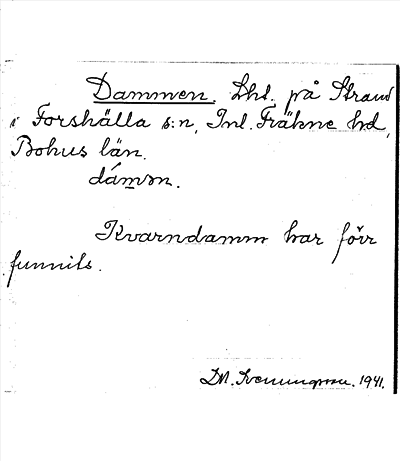 Dammen. Lht. på Strand
i Forshälla s:n, Inl. Fräkne hd,
Bohus län.
dámən.
Kvarndamm har förr
funnits.
D.M. Svenungsson. 1941.